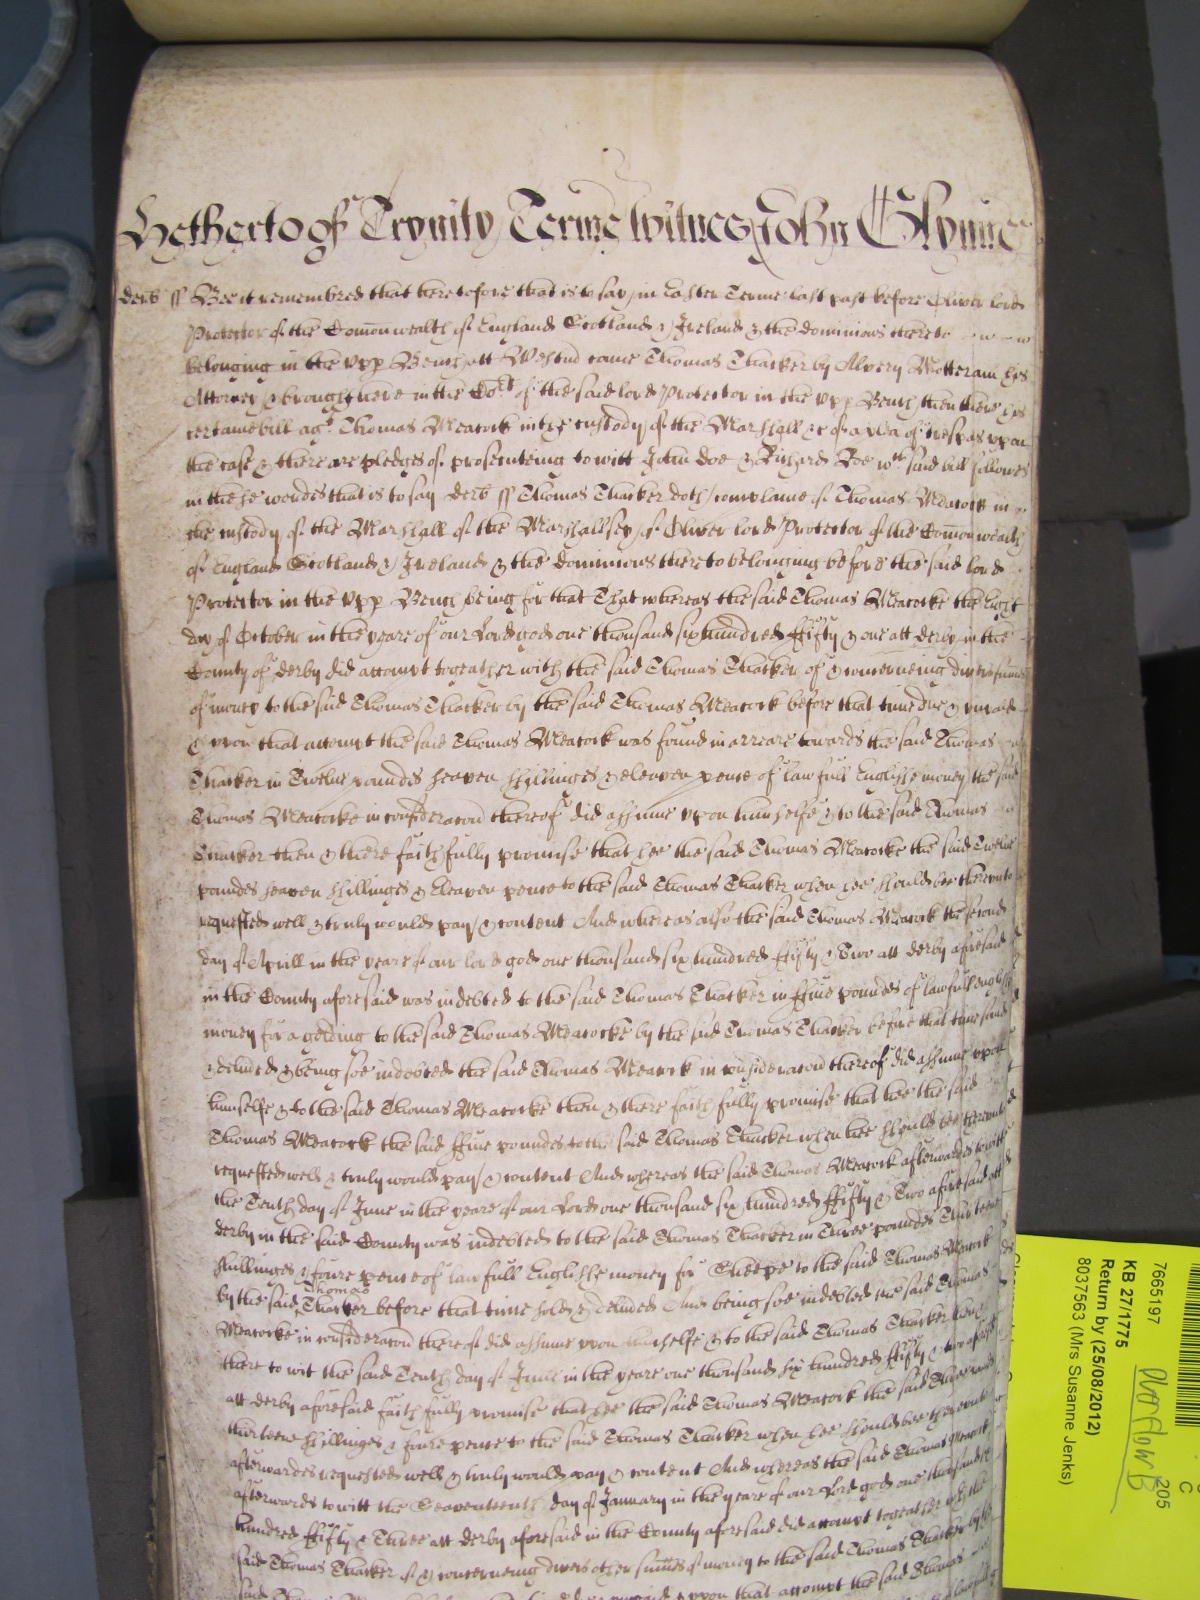 Hetherto of Trynity Terme Witnes John Glynne
derb ss Bee it remembred that heretofore that is to say in Easter Terme last past before Oliver lord
Protector of the Comonwealth of England Scotland & Ireland & the dominions thereto
belonging in the Upp Bench att Westmr came Thomas Thacker by Alvery Motteram his
Attorney & brought here in the Cort of the said lord Protector in the Upp Bench then there his
certaine bill agt Thomas Meacock in the custody of the Marshall &c of a plea of trespas upon
the case & there are pledges of prosecuteing to witt John Doe & Richard Roe wch said bill followes
in these wordes that is to say derb ss Thomas Thacker doth complaine of Thomas Meacock in
the custody of the Marshall of the Marshallsey of Oliver lord Protector of the Comonwealth
of England Scotland & Ireland & the dominions thereto belonging before the said lord
Protector in the Upp Bench being for that That whereas the said Thomas Meacocke the
day of October in the yeare of our Lord god one thousand six hundred ffifty & one att derby in the
County of derby did accompt togeather with the said Thomas Thacker of & concerneing divers summes
of money to the said Thomas Thacker by the said Thomas Meacock before that time due & unpaid
& upon that accompt the said Thomas Meacock was found in arreare towards the said Thomas
Thacker in Twelve poundes seaven shillinges & eleaven pence of lawfull Englishe money the said
Thomas Meacocke in consideracon thereof did assume upon himselfe & to the said Thomas
Thacker then & there faithfully promise that hee the said Thomas Meacocke the said Twelve
poundes seaven shillinges & Eleaven pence to the said Thomas Thacker when hee should bee thereunto
requested well & truly would pay & content And whereas also the said Thomas Meacock the second
day of Aprill in the yeare of our lord god one thousand six hundred ffifty & Two att derby aforesaid
in the County aforesaid was indebted to the said Thomas Thacker in ffive poundes of lawfull english
money for a gelding to the said Thomas Meacocke by the said Thomas Thacker before that time sould
& delivered & being soe indebted the said Thomas Meacock in consideracon thereof did assume upon
himselfe & to the said Thomas Meacocke then & there faithfully promise that hee the said
Thomas Meacock the said ffive poundes to the said Thomas Thacker when hee should bee thereunto
requested well & truly would pay & content And whereas the said Thomas Meacock afterwardes to witt
the Tenth day of June in the yeare of our Lord one thousand six hundred ffifty & Two aforesaid att
derby in the said County was indebted to the said Thomas Thacker in Three poundes Thirteene
shillinges & foure pence of lawfull Englishe money for Sheepe to the said Thomas Meacock
by the said Thomas Thacker before that time sold & delivered And being soe indebted the said Thomas
Meacocke in consideracon thereof did assume upon himselfe & to the said Thomas Thacker then &
there to wit the said Tenth day of June in the yeare one thousand six hundred ffifty & two aforesaid
att derby aforesaid faithfully promise that hee the said Thomas Meacock the said Three poundes
thirteene shillinges & foure pence to the said Thomas Thacker when hee should bee thereunto
afterwardes requested well & truly would pay & content And whereas the said Thomas Meacock
afterwards to witt the Seaventeenth day of January in the yeare of our Lord god one thousand six
hundred ffifty & Three att derby aforesaid in the County aforesaid did accompt togeather with the
said Thomas Thacker of & concerneing divers other summes of money to the said Thomas Thacker by the
said Thomas unpaid & upon that accompt the said Thomas
7665197
KB 27/1775
Return by (25/08/2012)
8037563 (Mrs Susanne Jenks)
C
205